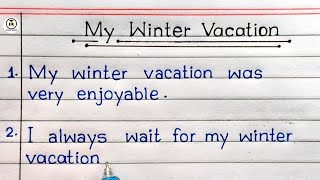 My Winter Vacation
1. My winter vacation was
very enjoyable.
2. I always wait for my winter
vacation